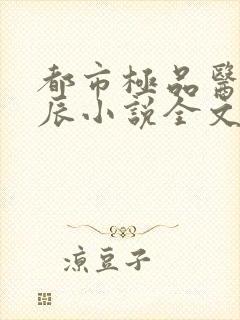 都市極品醫
辰小說全文
凉豆子